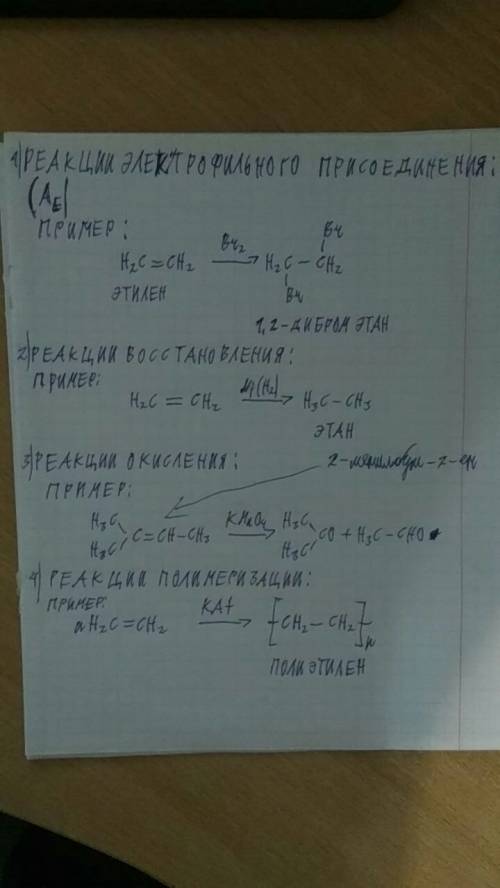 1) РЕАКЦИИ ЭЛЕКТРОФИЛЬНОГО ПРИСОЕДИНЕНИЯ:
(AE)
ПРИМЕР:
H2C=CH2 Br2 → H2C-CH2
Br
Br
ЭТИЛЕН
1,2-ДИБРОМЭТАН
2) РЕАКЦИИ ВОССТАНОВЛЕНИЯ:
ПРИМЕР:
H2C=CH2 (H2) → H3C-CH3
ЭТАН
3) РЕАКЦИИ ОКИСЛЕНИЯ:
2-метилбут-2-ен
ПРИМЕР:
H3C H3C C=CH-CH3 KMnO4 → H3C H3C CO + H3C-CHO
4) РЕАКЦИИ ПОЛИМЕРИЗАЦИИ:
ПРИМЕР:
nH2C=CH2 КАТ → [CH2-CH2]n
ПОЛИЭТИЛЕН